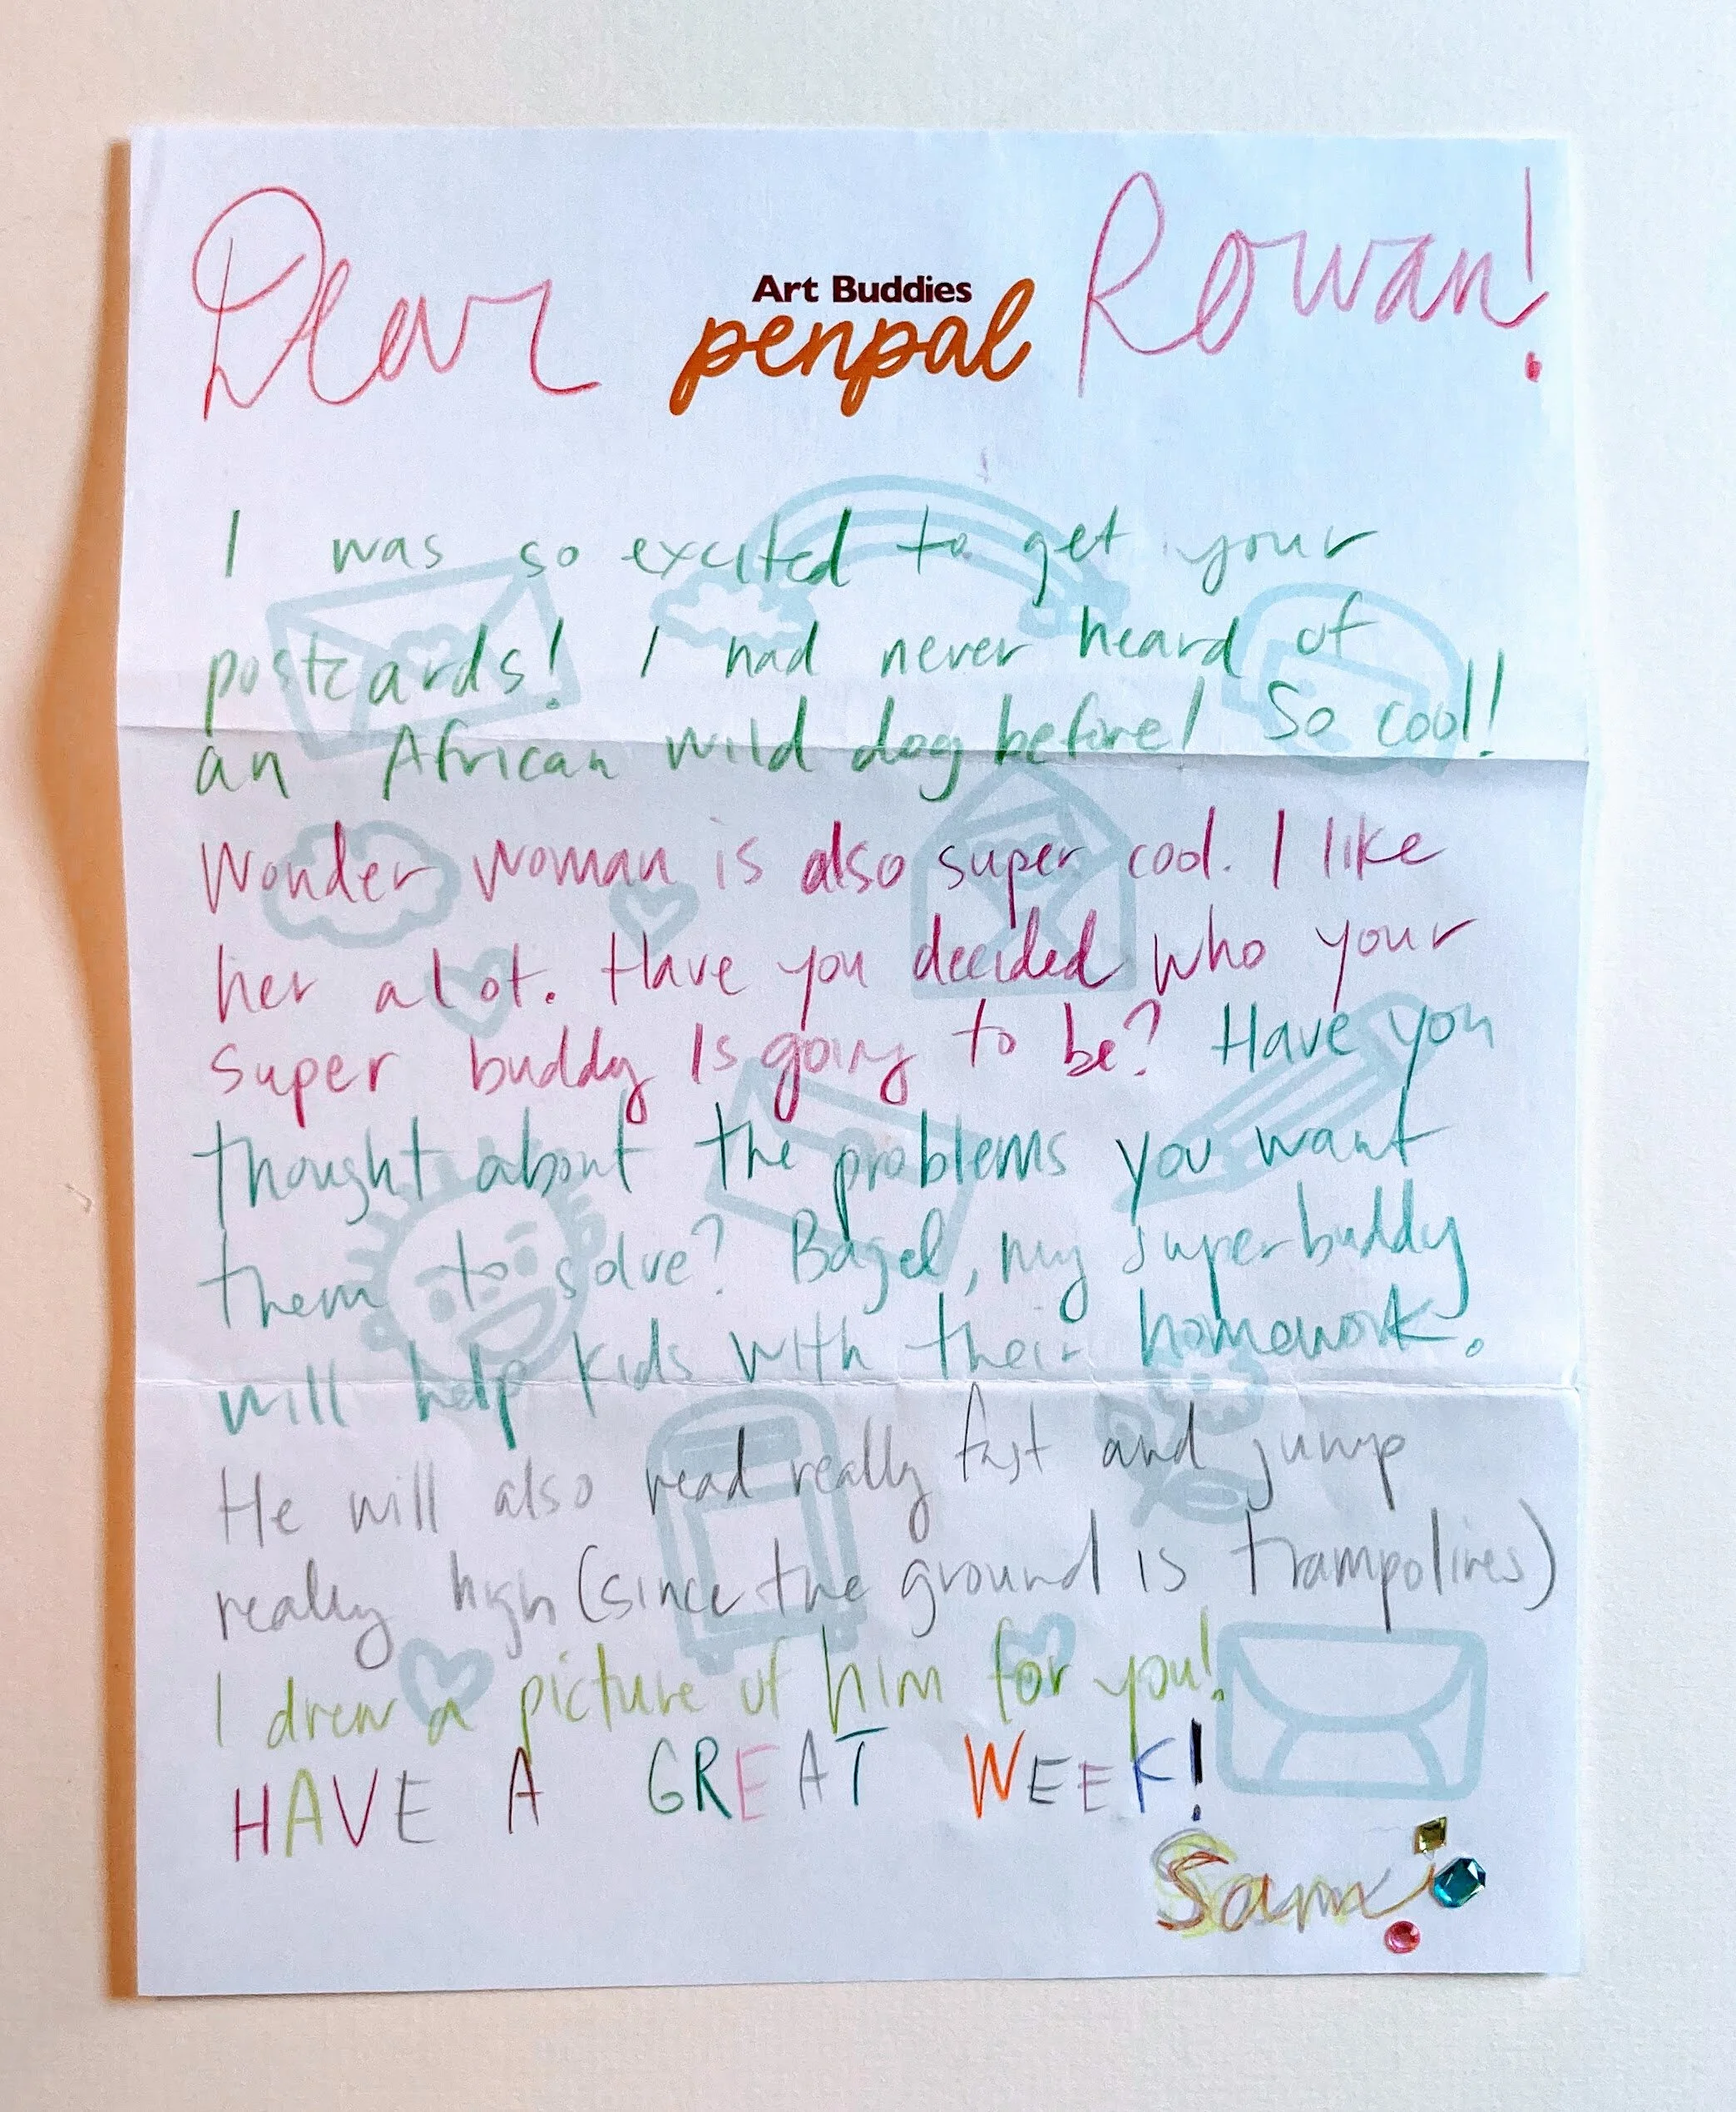 Dear Rowan!
Art Buddies
penpal
I was so excited to get your
postcards! I had never heard of
an African wild dog before! So cool!!
Wonder Woman is also super cool. I like
her alot. Have you decided who your
super buddy is going to be? Have you
thought about the problems you want
them to solve? Bagel, my superbuddy
will help kids with their homework.
He will also read really fast and jump
really high (since the ground is trampolines)
I drew a picture of him for you!
HAVE A GREAT WEEK!
Sam